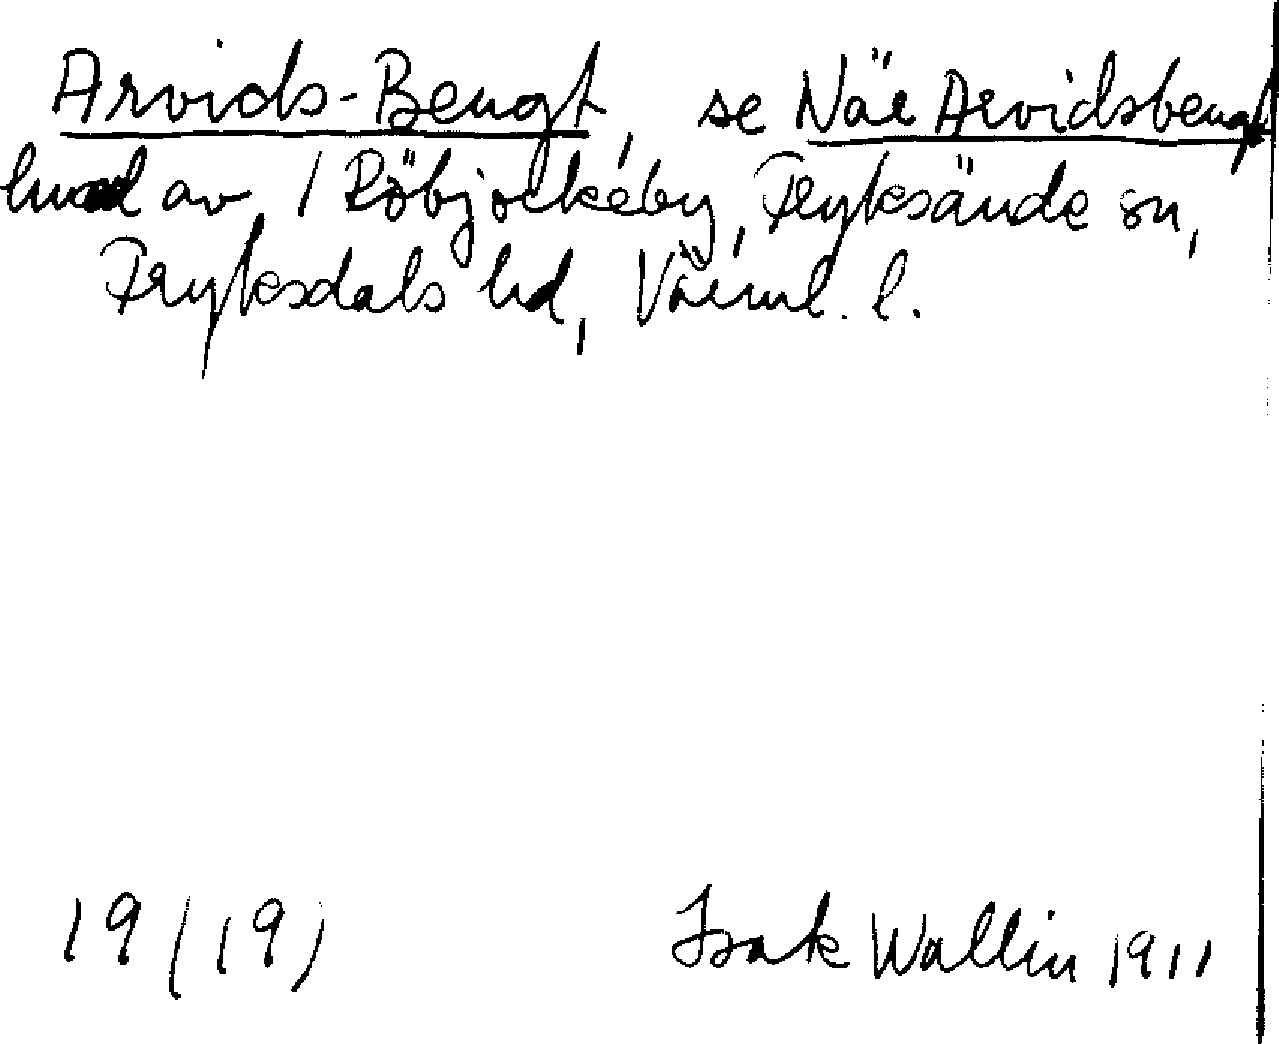 Arvids-Bengt, se När Arvidsbengt
hmd av 1 Röbjörkeby, Fryksände sn,
Fryksdals hd, Värml. l.
19 (19) Isak Wallin 1911